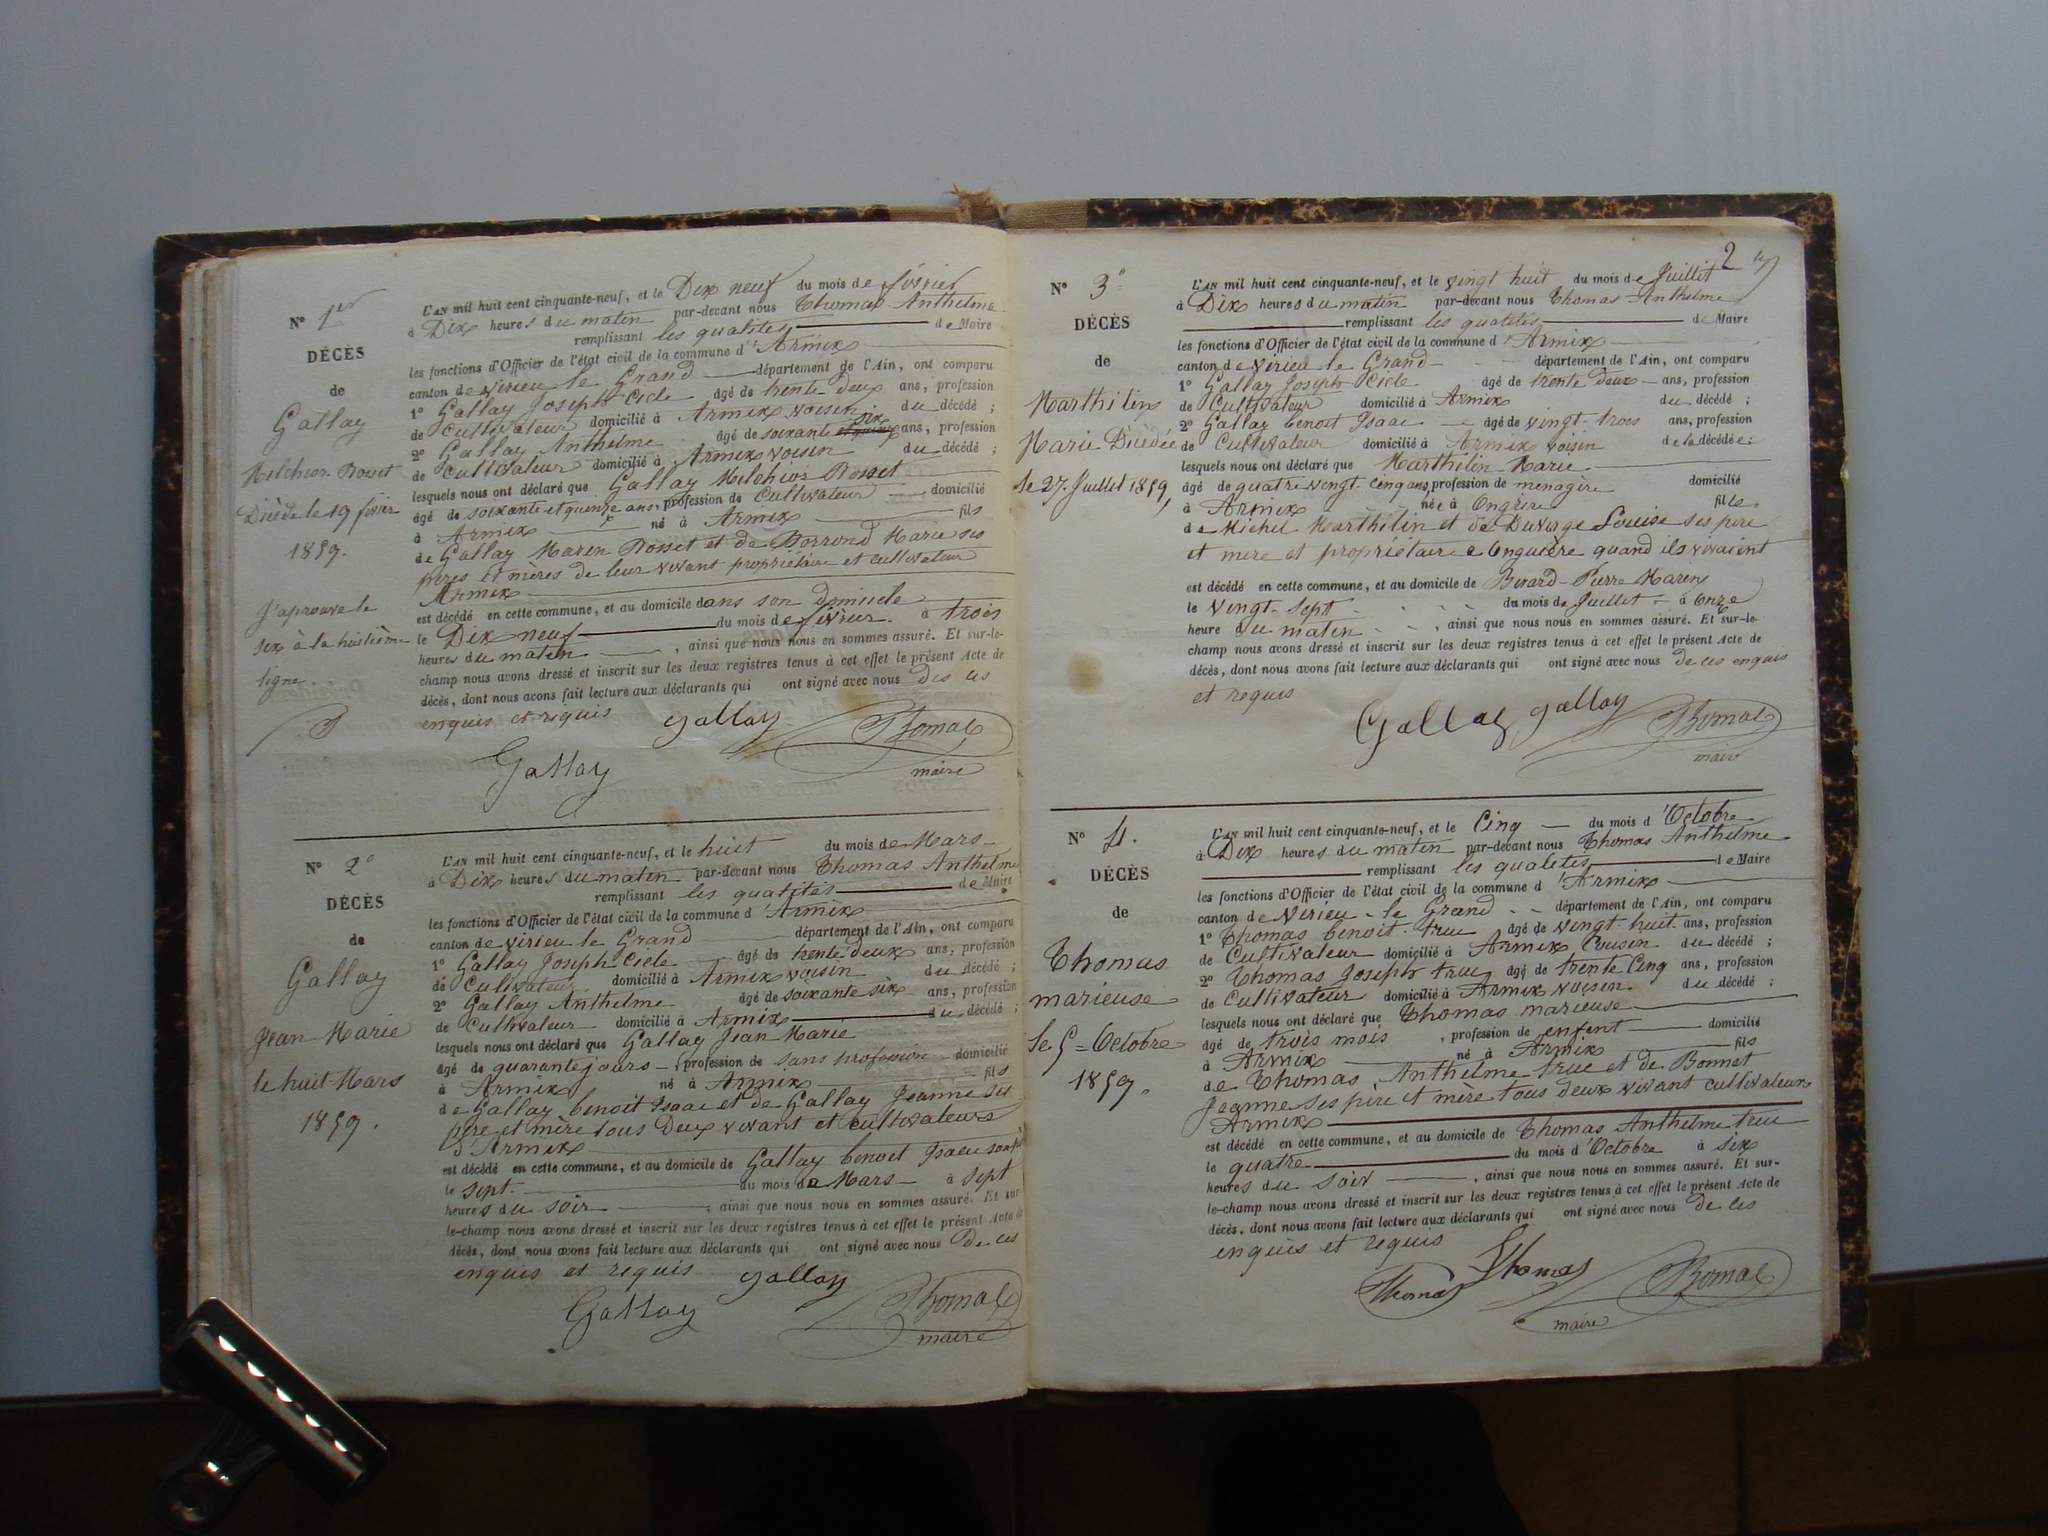 N° 1er
DÉCÈS
de
Gallay
Melchior Rosset
Décédé le 19 février
1859.
J'aprouve le
six à la huitième
ligne.
L'AN mil huit cent cinquante-neuf, et le Dix neuf du mois de février
à Dix heures du matin par-devant nous Thomas Anthelme
remplissant les qualités de Maire
les fonctions d'Officier de l'état civil de la commune d'Armix
canton de virieu le Grand département de l'Ain, ont comparu
1° Gallay Joseph Cicle âgé de trente deux ans, profession
de Cultivateur domicilié à Armix voisin du décédé ;
2° Gallay Anthelme âgé de soixante six ans, profession
de Cultivateur domicilié à Armix voisin du décédé ;
lesquels nous ont déclaré que Gallay Melchior Rosset
âgé de soixante et quenze ans, profession de Cultivateur domicilié
à Armix né à Armix fils
de Gallay Maren Rosset et de Borrond Marie ses
pères et mères de leur vivant propriétaire et cultivateur
Armix
est décédé en cette commune, et au domicile dans son domicile
le Dix neuf du mois de février à trois
heures du matin , ainsi que nous nous en sommes assuré. Et sur-le-
champ nous avons dressé et inscrit sur les deux registres tenus à cet effet le présent Acte de
décès, dont nous avons fait lecture aux déclarants qui ont signé avec nous Des ces
enquis et requis
gallay Thomas
Gallay maire
N° 2°
DÉCÈS
de
Gallay
Jean Marie
le huit Mars
1859.
L'AN mil huit cent cinquante-neuf, et le huit du mois de Mars
à Dix heures du matin par-devant nous Thomas Anthelme
remplissant les qualités de Maire
les fonctions d'Officier de l'état civil de la commune d'Armix
canton de virieu le Grand département de l'Ain, ont comparu
1° Gallay Joseph Cicle âgé de trente deux ans, profession
de Cultivateur domicilié à Armix voisin du décédé ;
2° Gallay Anthelme âgé de soixante six ans, profession
de Cultivateur domicilié à Armix du décédé ;
lesquels nous ont déclaré que Gallay Jean Marie
âgé de quarante jours , profession de sans profession domicilié
à Armix né à Armix fils
de Gallay benoit Isaac et de Gallay Jeanne ses
père et mère tous Deux vivant et cultivateurs
d'Armix
est décédé en cette commune, et au domicile de Gallay benoit Isaac son père
le sept du mois de Mars à sept
heures du soir , ainsi que nous nous en sommes assuré. Et sur
le-champ nous avons dressé et inscrit sur les deux registres tenus à cet effet le présent Acte de
décès, dont nous avons fait lecture aux déclarants qui ont signé avec nous De ces
enquis et requis gallay
Gallay Thomas
maire
2
N° 3°
DÉCÈS
de
Marthilin
Marie Décédée
le 27 Juillet 1859,
L'AN mil huit cent cinquante-neuf, et le vingt huit du mois de Juillet
à Dix heures du matin par-devant nous Thomas Anthelme
remplissant les qualités de Maire
les fonctions d'Officier de l'état civil de la commune d'Armix
canton de Virieu le Grand département de l'Ain, ont comparu
1° Gallay Joseph Cicle âgé de trente deux ans, profession
de Cultivateur domicilié à Armix du décédé ;
2° Gallay benoit Isaac âgé de vingt-trois ans, profession
de Cultivateur domicilié à Armix voisin de la décédée ;
lesquels nous ont déclaré que Marthilin Marie
âgé de quatre vingt cinq ans, profession de menagère domicilié
à Armix née à Ongrère fille
de Michel Marthilin et de Duverge Louise ses pere
et mere et propriétaire a Onguière quand ils vivaient
est décédé en cette commune, et au domicile de Berard Pierre Maren
le vingt-sept du mois de Juillet à Onze
heure du matin , ainsi que nous nous en sommes assuré. Et sur-le-
champ nous avons dressé et inscrit sur les deux registres tenus à cet effet le présent Acte de
décès, dont nous avons fait lecture aux déclarants qui ont signé avec nous de ces enquis
et requis
Gallay gallay Thomas
maire
N° 4.
DÉCÈS
de
Thomas
marieuse
le 5 = Octobre
1859.
L'AN mil huit cent cinquante-neuf, et le Cinq du mois d'Octobre
à Dix heures du matin par-devant nous Thomas Anthelme
remplissant les qualités de Maire
les fonctions d'Officier de l'état civil de la commune d'Armix
canton de Virieu-le Grand département de l'Ain, ont comparu
1° Thomas benoit truc âgé de vingt-huit ans, profession
de Cultivateur domicilié à Armix Cousin du décédé ;
2° Thomas Joseph truc âgé de trente Cinq ans, profession
de Cultivateur domicilié à Armix voisin du décédé ;
lesquels nous ont déclaré que Thomas marieuse
âgé de trois mois , profession de enfent domicilié
à Armix né à Armix fils
de Thomas Anthelme truc et de Bonnet
Jeanne ses pere et mère tous deux vivant cultivateurs
Armix
est décédé en cette commune, et au domicile de Thomas Anthelme truc
le quatre du mois d'Octobre à six
heures du soir , ainsi que nous nous en sommes assuré. Et sur-
le-champ nous avons dressé et inscrit sur les deux registres tenus à cet effet le présent Acte de
décès, dont nous avons fait lecture aux déclarants qui ont signé avec nous De ces
enquis et requis
Thomas Thomas Thomas
maire